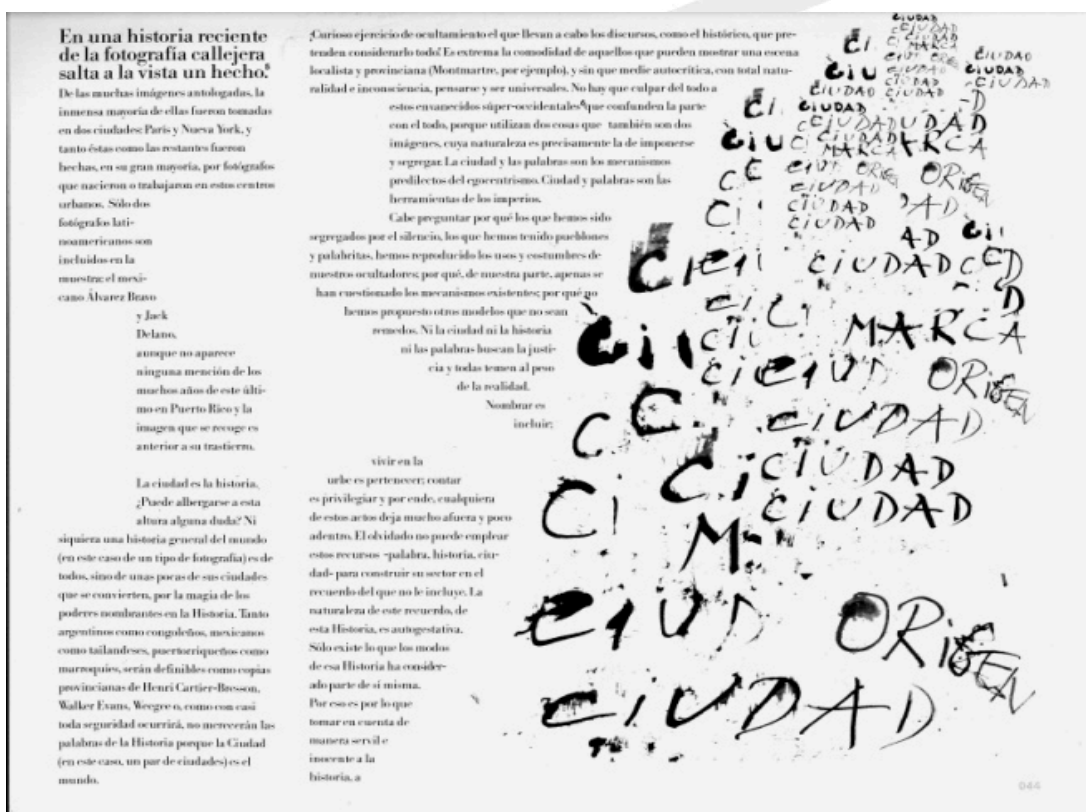 En una historia reciente
de la fotografía callejera
salta a la vista un hecho.
De las muchas imágenes antologadas, la
inmensa mayoría de ellas fueron tomadas
en dos ciudades: París y Nueva York, y
tanto éstas como las restantes fueron
hechas, en su gran mayoría, por fotógrafos
que nacieron o trabajaron en estos centros
urbanos. Sólo dos
fotógrafos lati-
noamericanos son
incluidos en la
muestra: el mexi-
cano Álvarez Bravo
y Jack
Delano,
aunque no aparece
ninguna mención de los
muchos años de este últi-
mo en Puerto Rico y la
imagen que se recoge es
anterior a su trastierro.
La ciudad es la historia.
¿Puede albergarse a esta
altura alguna duda? Ni
siquiera una historia general del mundo
(en este caso de un tipo de fotografía) es de
todos, sino de unas pocas de sus ciudades
que se convierten, por la magia de los
poderes nombrantes en la Historia. Tanto
argentinos como congoleños, mexicanos
como tailandeses, puertorriqueños como
marroquíes, serán definibles como copias
provincianas de Henri Cartier-Bresson,
Walker Evans, Weegee o, como con casi
toda seguridad ocurrirá, no merecerán las
palabras de la Historia porque la Ciudad
(en este caso, un par de ciudades) es el
mundo.
¡Curioso ejercicio de ocultamiento el que llevan a cabo los discursos, como el histórico, que pre-
tenden considerarlo todo! Es extrema la comodidad de aquellos que pueden mostrar una escena
localista y provinciana (Montmartre, por ejemplo), y sin que medie autocrítica, con total natu-
ralidad e inconsciencia, pensarse y ser universales. No hay que culpar del todo a
estos envanecidos súper-occidentales que confunden la parte
con el todo, porque utilizan dos cosas que también son dos
imágenes, cuya naturaleza es precisamente la de imponerse
y segregar. La ciudad y las palabras son los mecanismos
predilectos del egocentrismo. Ciudad y palabras son las
herramientas de los imperios.
Cabe preguntar por qué los que hemos sido
segregados por el silencio, los que hemos tenido pueblones
y palabritas, hemos reproducido los usos y costumbres de
nuestros ocultadores; por qué, de nuestra parte, apenas se
han cuestionado los mecanismos existentes; por qué no
hemos propuesto otros modelos que no sean
remedos. Ni la ciudad ni la historia
ni las palabras buscan la justi-
cia y todas temen al peso
de la realidad.
Nombrar es
incluir;
vivir en la
urbe es pertenecer; contar
es privilegiar y por ende, cualquiera
de estos actos deja mucho afuera y poco
adentro. El olvidado no puede emplear
estos recursos -palabra, historia, ciu-
dad- para construir su sector en el
recuerdo del que no le incluye. La
naturaleza de este recuerdo, de
esta Historia, es autogestativa.
Sólo existe lo que los modos
de esa Historia ha consider-
ado parte de sí misma.
Por eso es por lo que
tomar en cuenta de
manera servil e
inocente a la
historia, a
CIUDAD
MARCA
CIUDAD
CIUDAD
CIUDAD
MARCA
ORIGEN
CIUDAD
CIUDAD
CIUDAD
MARCA
ORIGEN
CIUDAD
CIUDAD
CIUDAD
ORIGEN
CIUDAD
044